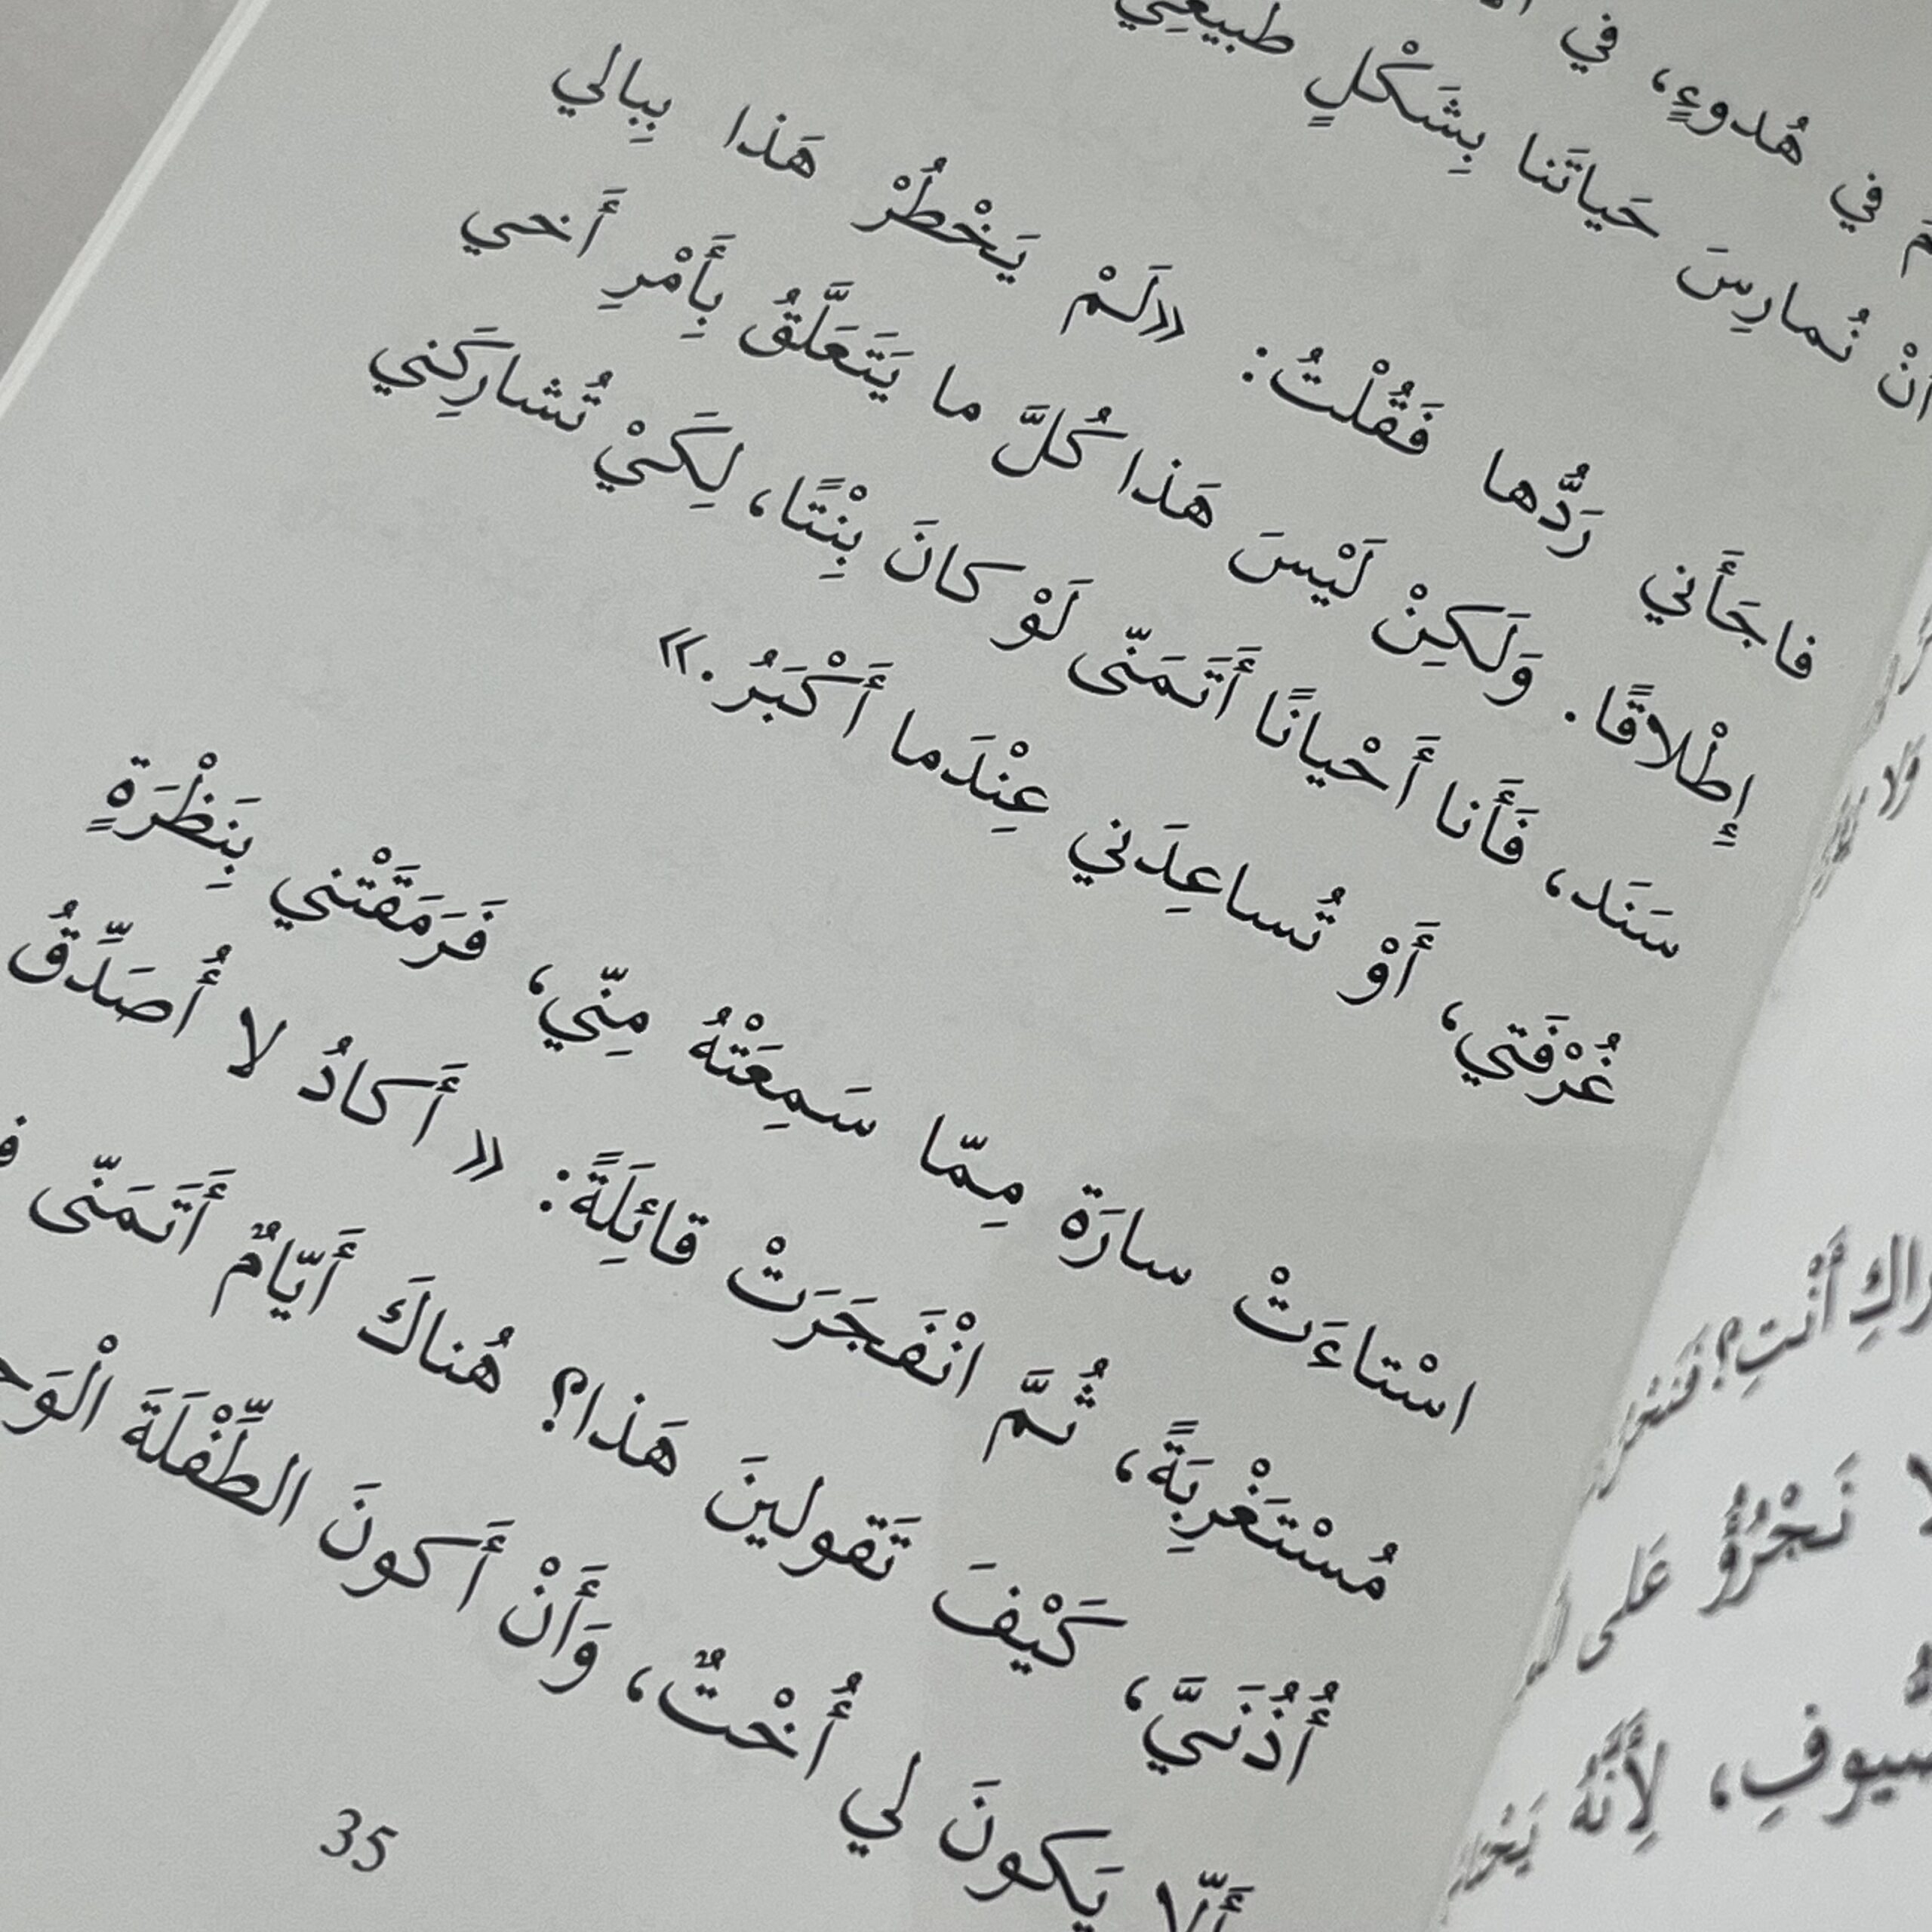 في هُدوءٍ، في
أَنْ نُمارِسَ حَياتَنا بِشَكْلٍ طَبيعِي
فاجَأَني رَدُّها فَقُلْتُ: «لَمْ يَخْطُرْ هَذا بِبالي
إِطْلاقًا. وَلَكِنْ لَيْسَ هَذا كُلَّ ما يَتَعَلَّقُ بِأَمْرِ أَخي
سَنَد، فَأَنا أَحْيانًا أَتَمَنّى لَوْ كانَ بِنْتًا، لِكَيْ تُشارِكَني
غُرْفَتي، أَوْ تُساعِدَني عِنْدَما أَكْبَرُ.»
اسْتاءَتْ سارَة مِمّا سَمِعَتْهُ مِنّي، فَرَمَقَتْني بِنَظْرَةٍ
مُسْتَغْرِبَةً، ثُمَّ انْفَجَرَتْ قائِلَةً: «أَكادُ لا أُصَدِّقُ
أُذُنَيَّ، كَيْفَ تَقولينَ هَذا؟ هُناكَ أَيّامٌ أَتَمَنّى
أَلّا يَكونَ لي أُخْتٌ، وَأَنْ أَكونَ الطِّفْلَةَ
35
أَنْتِ؟
لا نَجْرُؤُ عَلى
لِأَنَّهُ